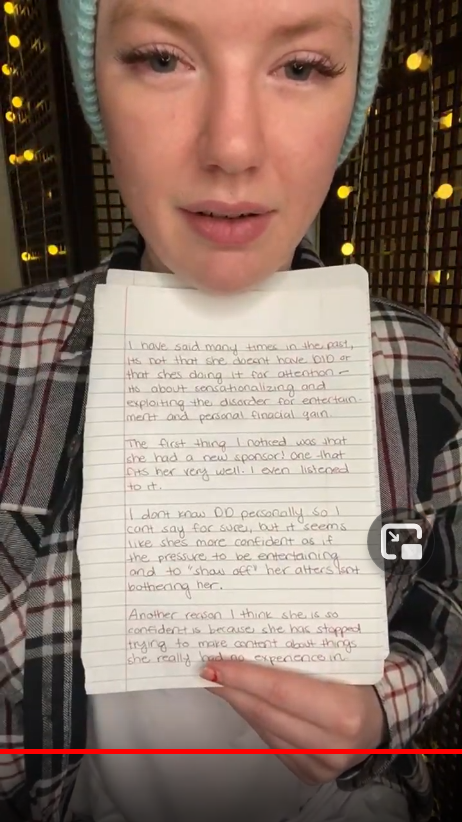 I have said many times in the past,
its not that she doesnt have DID or
that shes doing it for attention -
its about sensationalizing and
exploiting the disorder for entertain-
ment and personal finacial gain.
The first thing I noticed was that
she had a new sponsor! one that
fits her very well. I even listened
to it.
I dont know DD personally so I
cant say for sure, but it seems
like shes more confident as if
the pressure to be entertaining
and to "show off" her alters isnt
bothering her.
Another reason I think she is so
confident is because she has stopped
trying to make content about things
she really had no experience in.